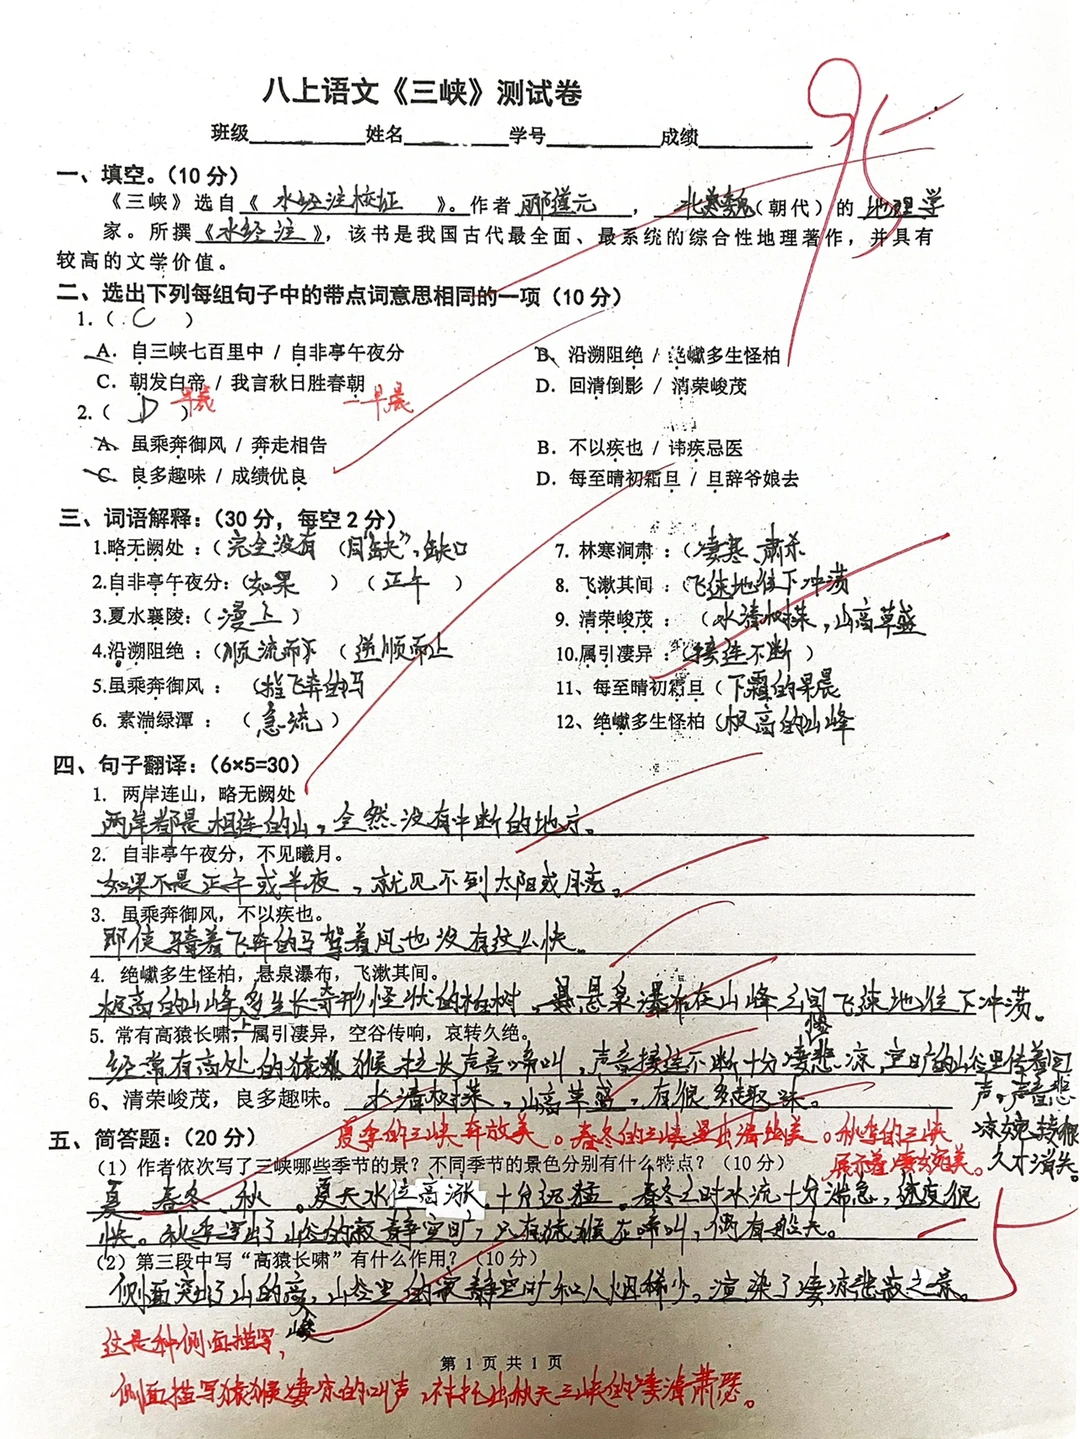 八上语文《三峡》测试卷
班级 姓名 学号 成绩
95
一、填空。（10分）
《三峡》选自《 水经注校证 》。作者 郦道元 ， 北魏（朝代）的 地理学
家。所撰《水经注》，该书是我国古代最全面、最系统的综合性地理著作，并具有
较高的文学价值。
二、选出下列每组句子中的带点词意思相同的一项（10分）
1.（ C ）
A. 自三峡七百里中 / 自非亭午夜分 B. 沿溯阻绝 / 绝巘多生怪柏
C. 朝发白帝 / 我言秋日胜春朝 D. 回清倒影 / 清荣峻茂
早晨 早晨
2.（ D ）
A. 虽乘奔御风 / 奔走相告 B. 不以疾也 / 讳疾忌医
C. 良多趣味 / 成绩优良 D. 每至晴初霜旦 / 旦辞爷娘去
三、词语解释：（30分，每空2分）
1.略无阙处 ：（完全没有 （同“缺”，缺口 7. 林寒涧肃 ：（凄寒、肃杀
2.自非亭午夜分：（如果 ） （ 正午 ） 8. 飞漱其间 ：（飞速地往下冲荡
3.夏水襄陵：（ 漫上 ） 9. 清荣峻茂 ： （水清树荣，山高草盛
4.沿溯阻绝 ：（顺流而下 （ 逆顺而上 10.属引凄异 ：（接连不断 ）
5.虽乘奔御风 ： （指飞奔的马 11、每至晴初霜旦（ 下霜的早晨
6. 素湍绿潭 ： （ 急流 ） 12、绝巘多生怪柏（极高的山峰
四、句子翻译：（6×5=30）
1. 两岸连山，略无阙处
两岸都是相连的山，全然没有中断的地方。
2. 自非亭午夜分，不见曦月。
如果不是正午或半夜，就见不到太阳或月亮。
3. 虽乘奔御风，不以疾也。
即使骑着飞奔的马驾着风也没有这么快。
4. 绝巘多生怪柏，悬泉瀑布，飞漱其间。
极高的山峰上多生长奇形怪状的柏树，悬泉瀑布在山峰之间飞速地往下冲荡。
5. 常有高猿长啸，属引凄异，空谷传响，哀转久绝。
经常有高处的猿猴拉长声音啼叫，声音接连不断十分凄悲凉，空旷的山谷里传着回
声，声音悲
凉婉转很
久才消失。
6、清荣峻茂，良多趣味。 水清树荣，山高草盛，有很多趣味。
五、简答题：（20分）
夏季的三峡奔放美。春冬的三峡显出清幽美。秋季的三峡
展示着凄婉美。
（1）作者依次写了三峡哪些季节的景？不同季节的景色分别有什么特点？（10分）
夏 春冬 秋 。夏天水位高涨十分迅猛。春冬之时水流十分湍急，速度很
快。秋季写出了山谷的寂静空旷，只有猿猴在啼叫，偶有船夫。
（2）第三段中写“高猿长啸”有什么作用？（10分）
侧面突出了山的高峻，山谷里的寂静空旷和人烟稀少。渲染了凄凉悲寂之景。
这是种侧面描写，
第 1 页 共 1 页
侧面描写猿猴凄凉的叫声，衬托出秋天三峡的凄清肃瑟。